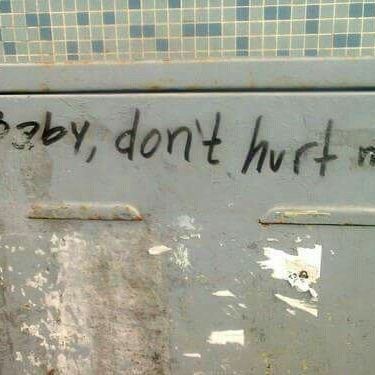 Baby, don't hurt m